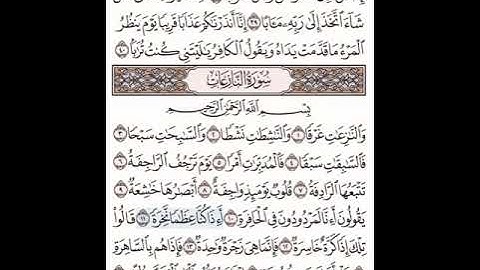 شَآءَ ٱتَّخَذَ إِلَىٰ رَبِّهِۦ مَـَٔابًا ٣٩ إِنَّآ أَنذَرْنَـٰكُمْ عَذَابًا قَرِيبًا يَوْمَ يَنظُرُ
ٱلْمَرْءُ مَا قَدَّمَتْ يَدَاهُ وَيَقُولُ ٱلْكَافِرُ يَـٰلَيْتَنِى كُنتُ تُرَٰبًۢا ٤٠
سُورَةُ النَّازِعَاتِ
بِسْمِ ٱللَّهِ ٱلرَّحْمَـٰنِ ٱلرَّحِيمِ
وَٱلنَّـٰزِعَـٰتِ غَرْقًا ١ وَٱلنَّـٰشِطَـٰتِ نَشْطًا ٢ وَٱلسَّـٰبِحَـٰتِ سَبْحًا ٣
فَٱلسَّـٰبِقَـٰتِ سَبْقًا ٤ فَٱلْمُدَبِّرَٰتِ أَمْرًا ٥ يَوْمَ تَرْجُفُ ٱلرَّاجِفَةُ ٦
تَتْبَعُهَا ٱلرَّادِفَةُ ٧ قُلُوبٌ يَوْمَئِذٍ وَاجِفَةٌ ٨ أَبْصَـٰرُهَا خَـٰشِعَةٌ ٩
يَقُولُونَ أَءِنَّا لَمَرْدُودُونَ فِى ٱلْحَافِرَةِ ١٠ أَءِذَا كُنَّا عِظَـٰمًا نَّخِرَةً ١١ قَالُوا۟
تِلْكَ إِذًا كَرَّةٌ خَاسِرَةٌ ١٢ فَإِنَّمَا هِىَ زَجْرَةٌ وَٰحِدَةٌ ١٣ فَإِذَا هُم بِٱلسَّاهِرَةِ